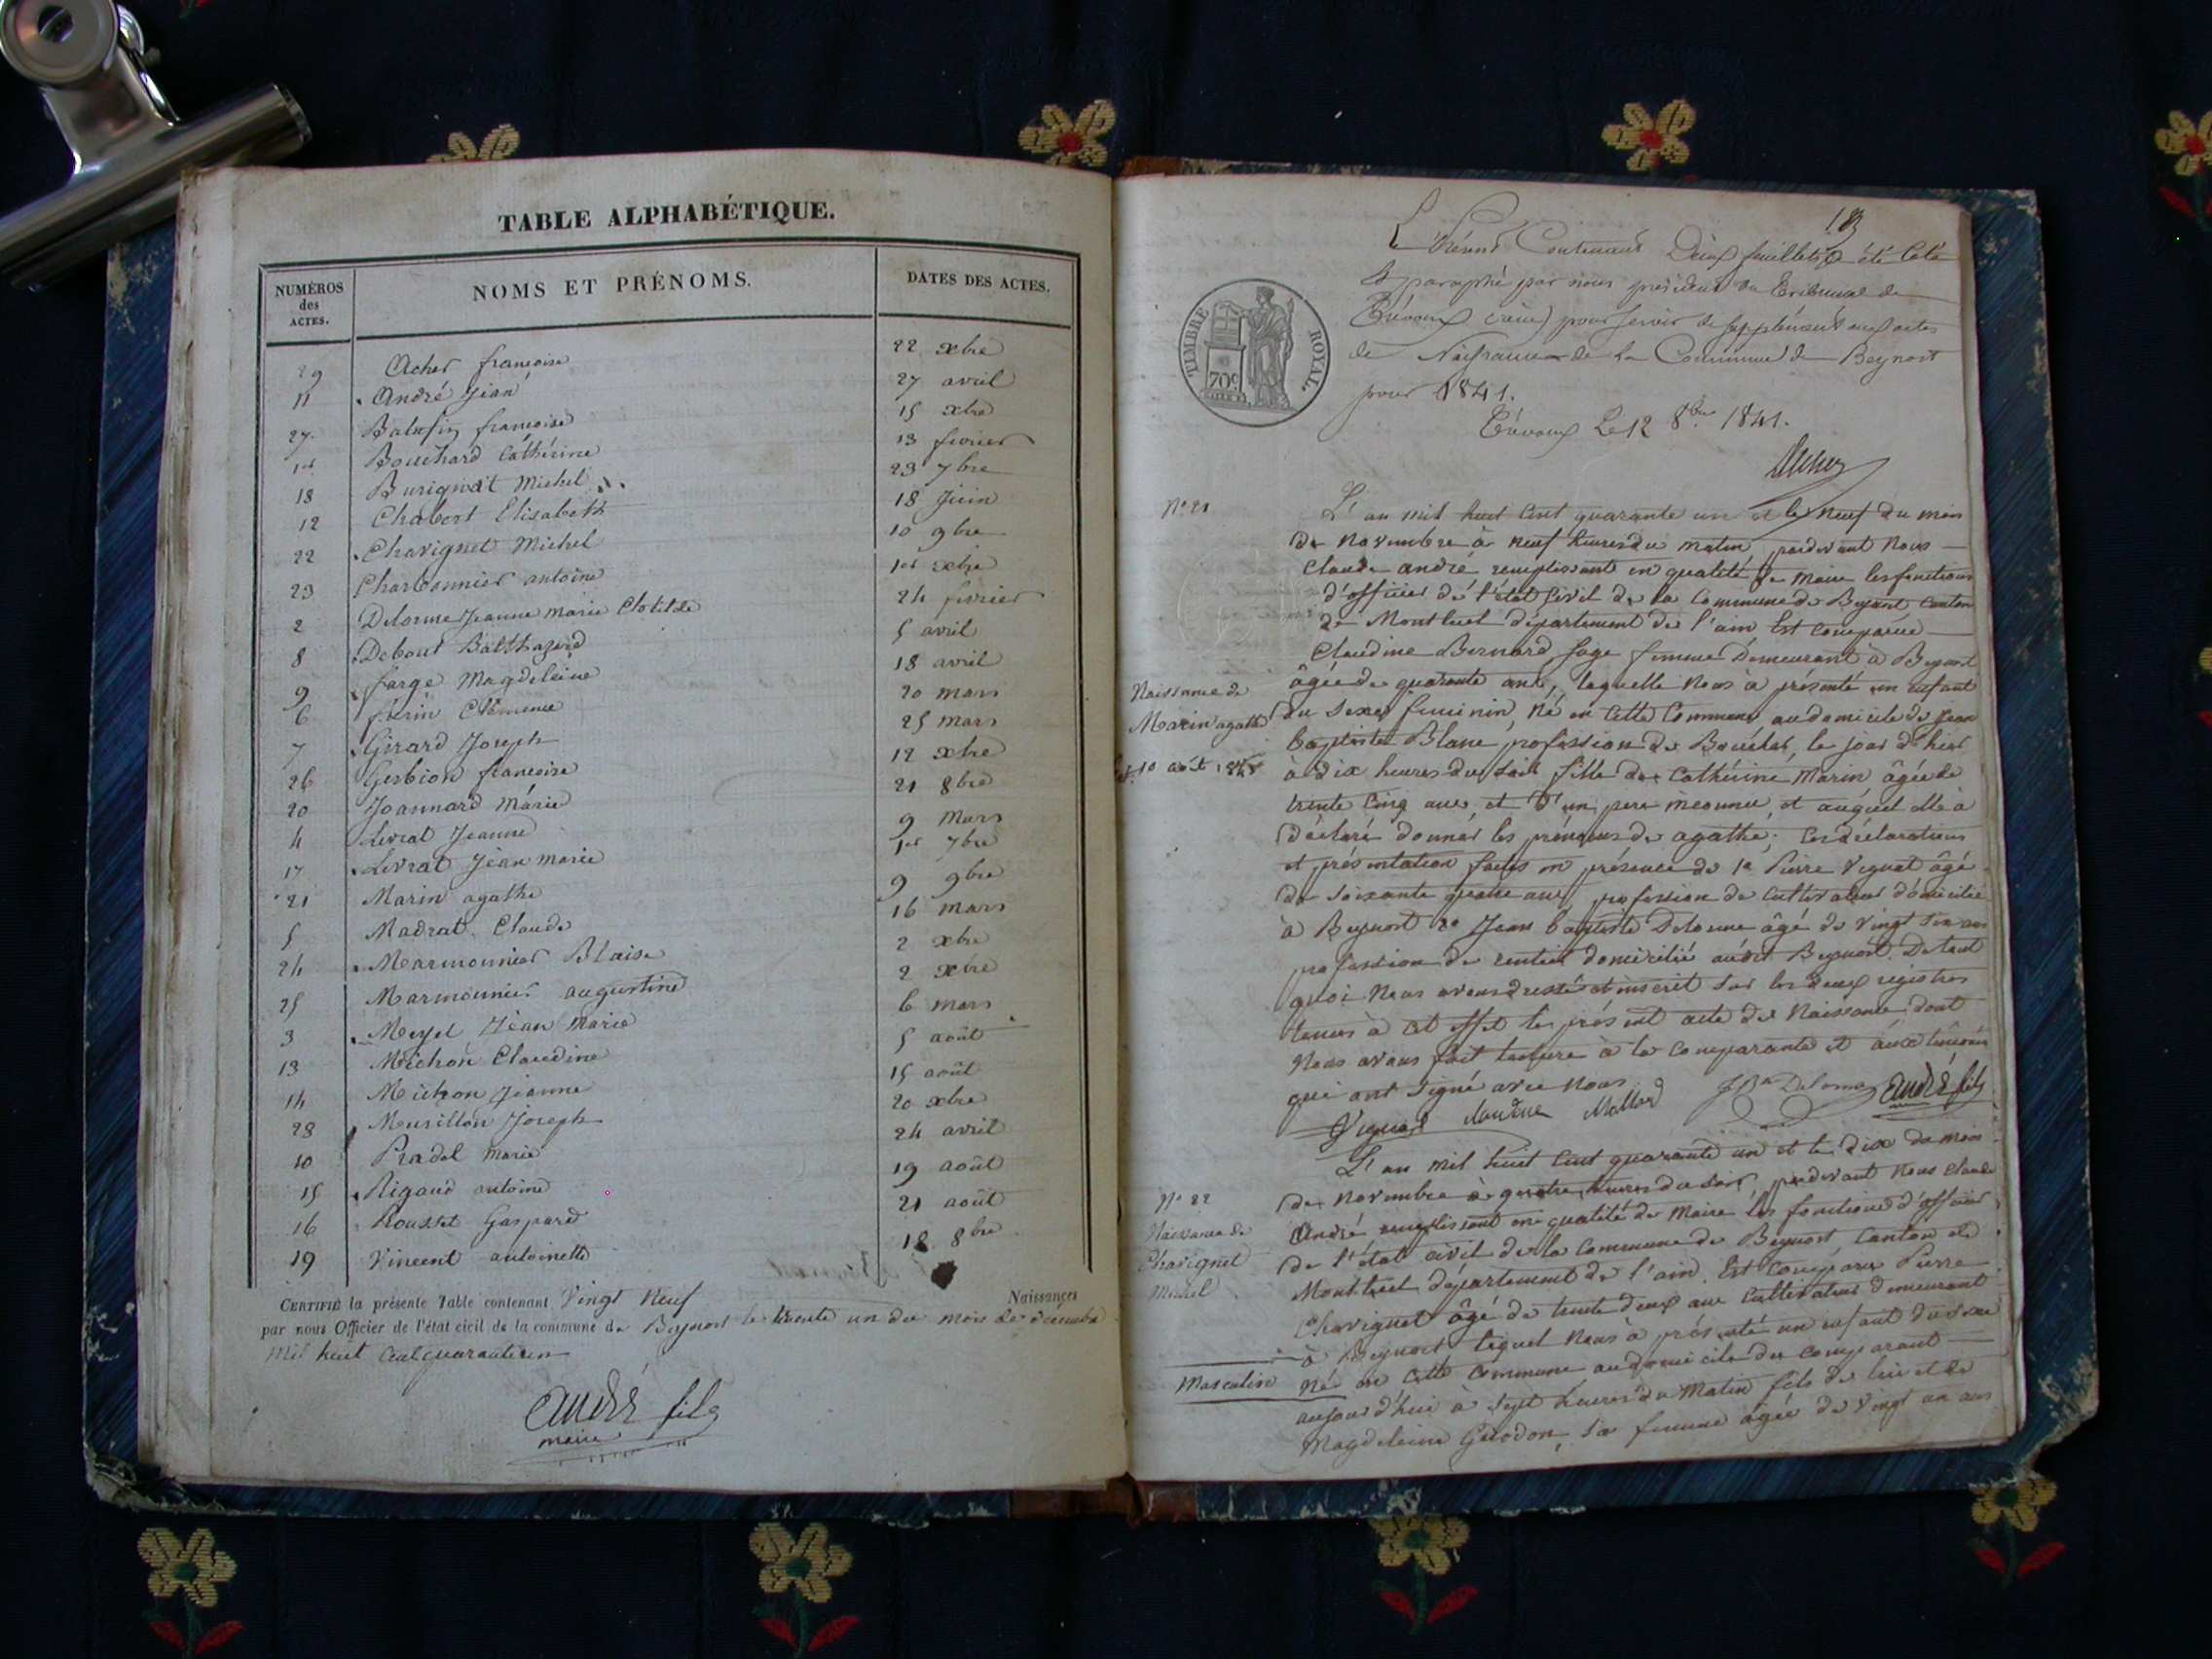 TABLE ALPHABÉTIQUE.
NUMÉROS des ACTES. NOMS ET PRÉNOMS. DATES DES ACTES.
29 Acher françoise 22 xbre
11 André Jean 27 avril
27 françoise 15 xbre
1er Bouchard Cathérine 13 fevrier
18 Burignat Michel 23 7bre
12 Chabert Elisabeth 18 Juin
22 Chavignet Michel 10 9bre
23 Charbonnier antoine 1er xbre
2 Delorme Jeanne Marie Clotilde 24 fevrier
8 Debout Balthazard 5 avril
9 farge Magdeleine 18 avril
6 Clémence 20 mars
7 Girard Joseph 25 mars
26 Gerbion françoise 12 xbre
20 Joannard Marie 21 8bre
4 Livrat Jeanne 9 Mars
17 Livrat Jean marie 1er 7bre
21 Marin agathe 9 9bre
5 Madrat Claude 16 mars
24 Marmonnier Blaise 2 xbre
25 Marmonnier augustine 2 xbre
3 Meyet Jean Marie 6 mars
13 Michon Claudine 5 août
14 Michon Jeanne 15 août
28 Murillon Joseph 20 xbre
10 Pradel Marie 24 avril
15 Rigaud antoine 19 août
16 Rousset Gaspard 21 août
19 Vincent antoinette 12 8bre
CERTIFIÉ la présente Table contenant Vingt Neuf Naissances
par nous Officier de l'état civil de la commune de Beynost le trente un du mois de décembre
mil huit cent quarante un
André fils
maire
183
Le Présent Contenant Deux feuillets a été Coté
& paraphé par nous président du Tribunal de
Trévoux (ain) pour servir de supplément aux actes
de Naissance de la Commune de Beynost
pour 1841.
Trévoux Le 12 8bre 1841.
TIMBRE ROYAL.
70c
N° 21
L'an mil huit cent quarante un et le neuf du mois
de Novembre à neuf heures du matin, pardevant Nous
Claude andré remplissant en qualité de Maire les fonctions
d'officier de l'état civil de la Commune de Beynost Canton
de Montluel département de l'ain Est comparue
Claudine Bernard sage femme Demeurant à Beynost
Naissance de
Marin agathe
10 août
âgée de quarante ans, laquelle Nous à présenté un enfant
du sexe feminin, né en cette Commune au domicile de Jean
baptiste Blanc profession de le jour d'hier
à dix heures du soir fille de Cathérine Marin âgée de
trente cinq ans, et d'un pere inconnu, et auquel elle à
déclaré donner les prénoms de agathe; les déclarations
et présentation faites en présence de 1° Pierre Vignat âgé
de soixante quatre ans, profession de Cultivateur domicilié
à Beynost 2° Jean baptiste Delorme âgé de vingt six ans
profession de rentier domicilié audit Beynost. De tout
quoi Nous avons dressé et inscrit sur les deux registres
tenus à cet effet le présent acte de Naissance dont
Nous avons fait lecture à la comparante et aux témoins
qui ont signé avec nous
Vignat Jn Bte Delorme André fils
N° 22
Naissance de
Chavignet
Michel
L'an mil huit cent quarante un et le dix du mois
de Novembre à quatre heures du soir pardevant Nous Claude
André remplissant en qualité de Maire les fonctions d'officier
de l'état civil de la Commune de Beynost Canton de
Montluel département de l'ain. Est comparu Pierre
Chavignet âgé de trente deux ans Cultivateur demeurant
à Beynost lequel Nous à présenté un enfant du sexe
Masculin né en cette Commune au domicile du comparant
aujourd'hui à sept heures du Matin fils de lui et de
Magdeleine Guodon, sa femme âgée de vingt un ans